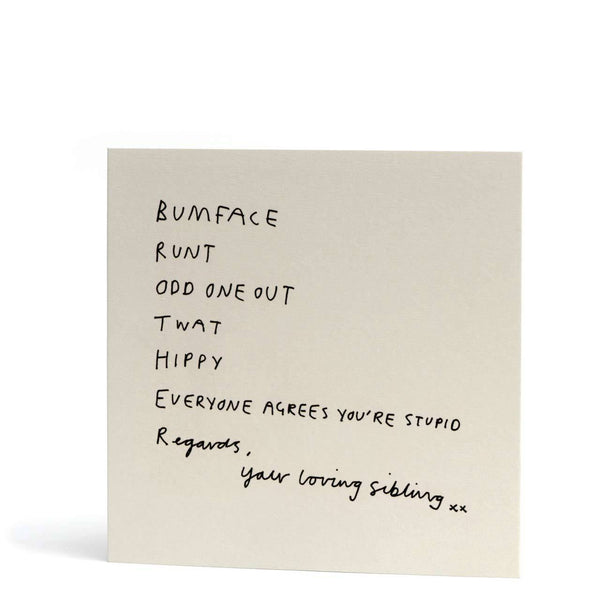 BUMFACE
RUNT
ODD ONE OUT
TWAT
HIPPY
EVERYONE AGREES YOU'RE STUPID
Regards,
your loving sibling xx